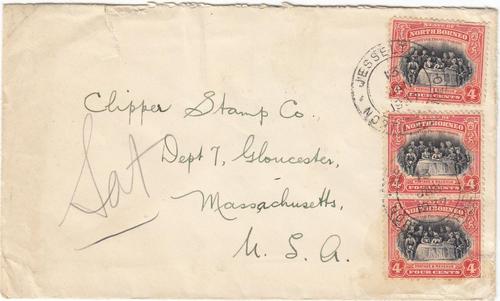 STATE OF
NORTH BORNEO
POSTAGE & REVENUE
4 FOUR CENTS 4
JESSE
15
NO
STATE OF
NORTH BORNEO
POSTAGE & REVENUE
4 FOUR CENTS 4
STATE OF
NORTH BORNEO
POSTAGE & REVENUE
4 FOUR CENTS 4
Clipper Stamp Co.,
Dept 7, Gloucester,
Massachusetts,
U. S. A.
Sat